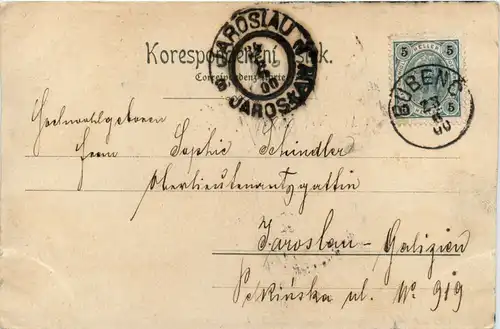 JAROSLAU JAROSŁAW
24
00
Korespondenční lístek.
Correspondenz-Karte
5 HELLER 5
5
BUBENČ
23
00
Hochwohlgeboren
Sophie Schindler
Oberlieutenantsgattin
Jaroslau-Galizien
ul. No 919